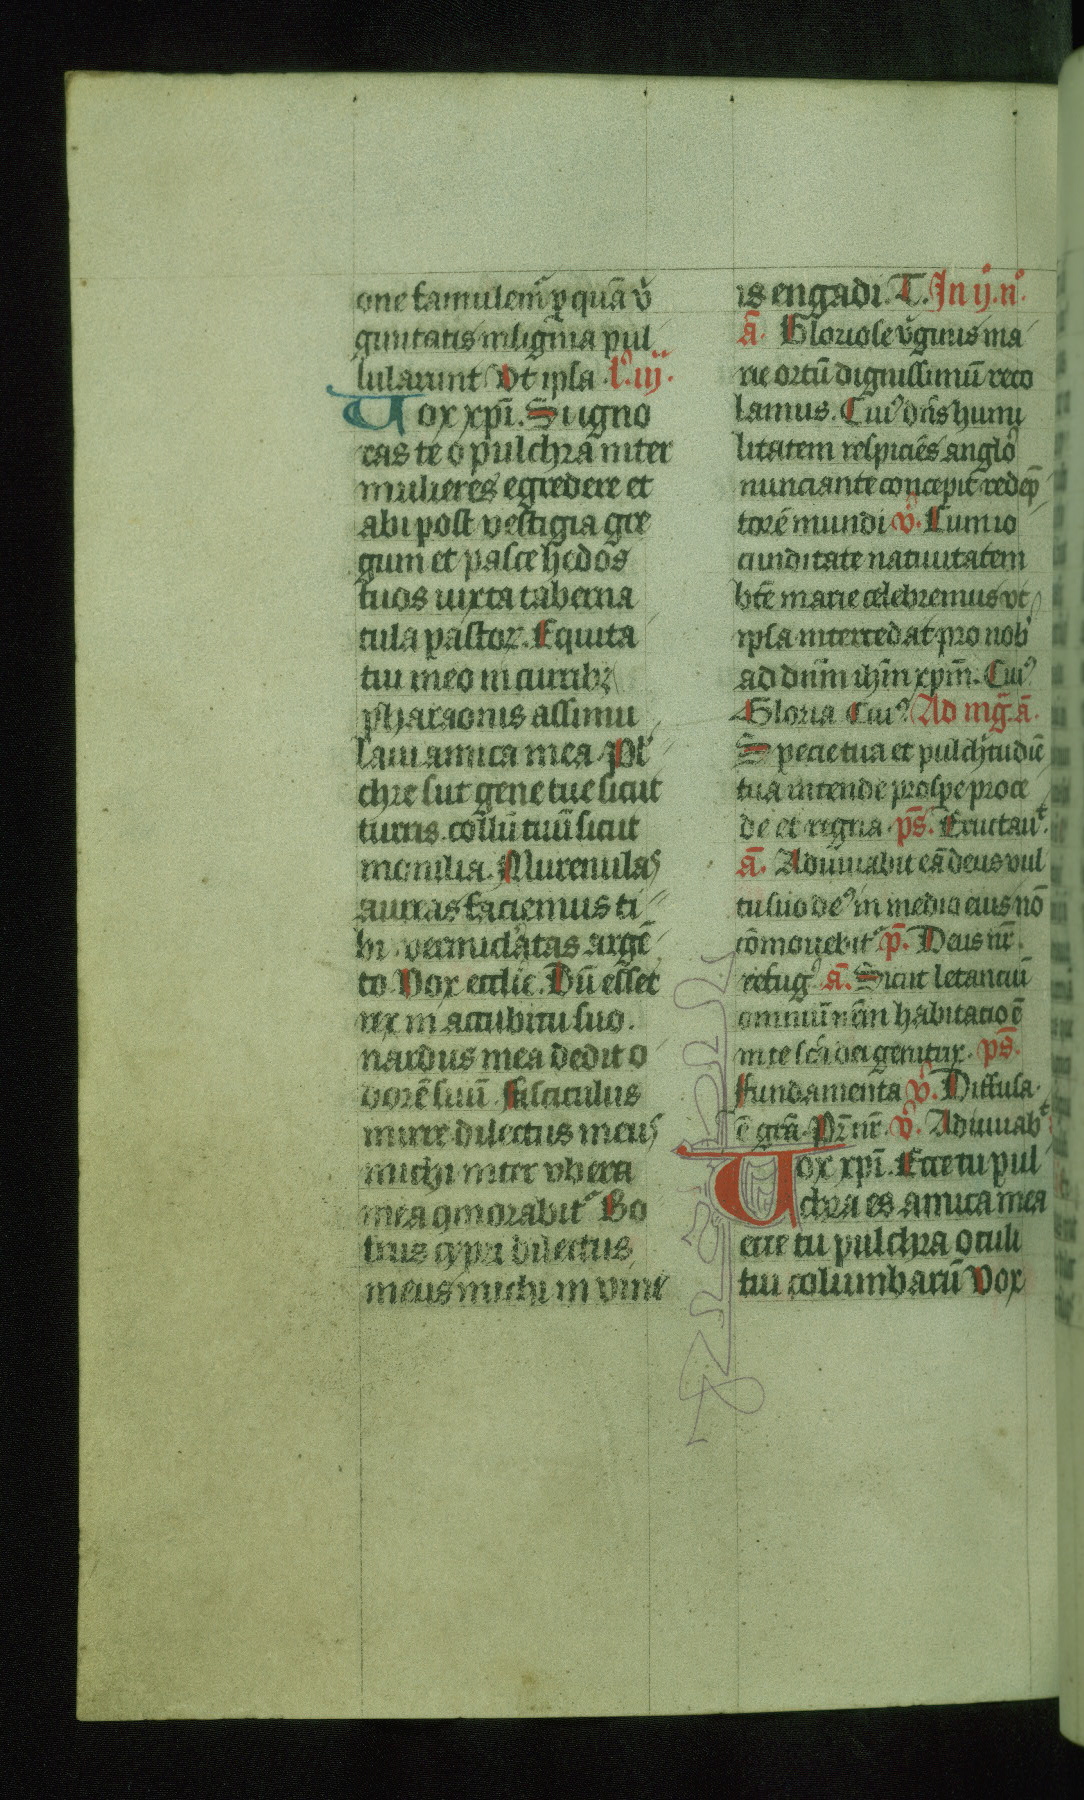 one famulem᷑ ꝑ quā v̉
ginitatis insignia pul
lularunt Vt ipsa l᷑. iij.
Uox xp̄i. Si igno
ras te o pulchra inter
mulieres egredere et
abi post vestigia gre
gum et pasce hedos
tuos iuxta taberna
cula pastor. Equita
tui meo in curribꝫ
pharaonis assimu
laui amica mea. Pl᷑
chre sūt gene tue sicut
turtis. collū tuū sicut
monilia. Murenulas
aureas faciemus ti
bi vermiculatas argē
to. Vox ecclīe. Dū esset
rex in accubitu suo.
nardus mea dedit o
dorē suū. Fasciculus
mirre dilectus meus
michi inter vbera
mea ꝯmorabit᷑ Bo
trus cypri dilectus
meus michi in vine
is engadi. T. In ij. n°.
ā. Gloriose v̉ginis ma
rie ortū dignissimū reco
lamus. Cuiꝰ dn̄s humi
litatem respiciēs anglo
nunciante concepit redēp
torē mundi v̉. Cum io
cunditate natiuitatem
bt̄e marie celebremus vt
ipsa intercedat pro nob᷑
ad dnm̄ ihm̄ xpm̄. Cuiꝰ
Gloria Cuiꝰ. Ad mg̅. ā.
Specie tua et pulch̉tudiē
tua intende prospe proce
de et regna. ps̄. Eructauᵗ.
ā. Adiuuabit eā deus vul
tu suo deꝰ in medio eius nō
cōmouebit᷑ p̄. Deus nr̄.
refug᷑. ā. Sicut letanciū
omniū nrm̄ habitacio ē
in te scā dei genitrix. ps̄.
Fundamenta v̉. Diffusa.
ē grā. Pr̄ nr̄. v̉. Adiuuabᵗ
Uox xp̄i. Ecce tu pul
chra es amica mea
ecce tu pulchra oculi
tui columbarū Vox